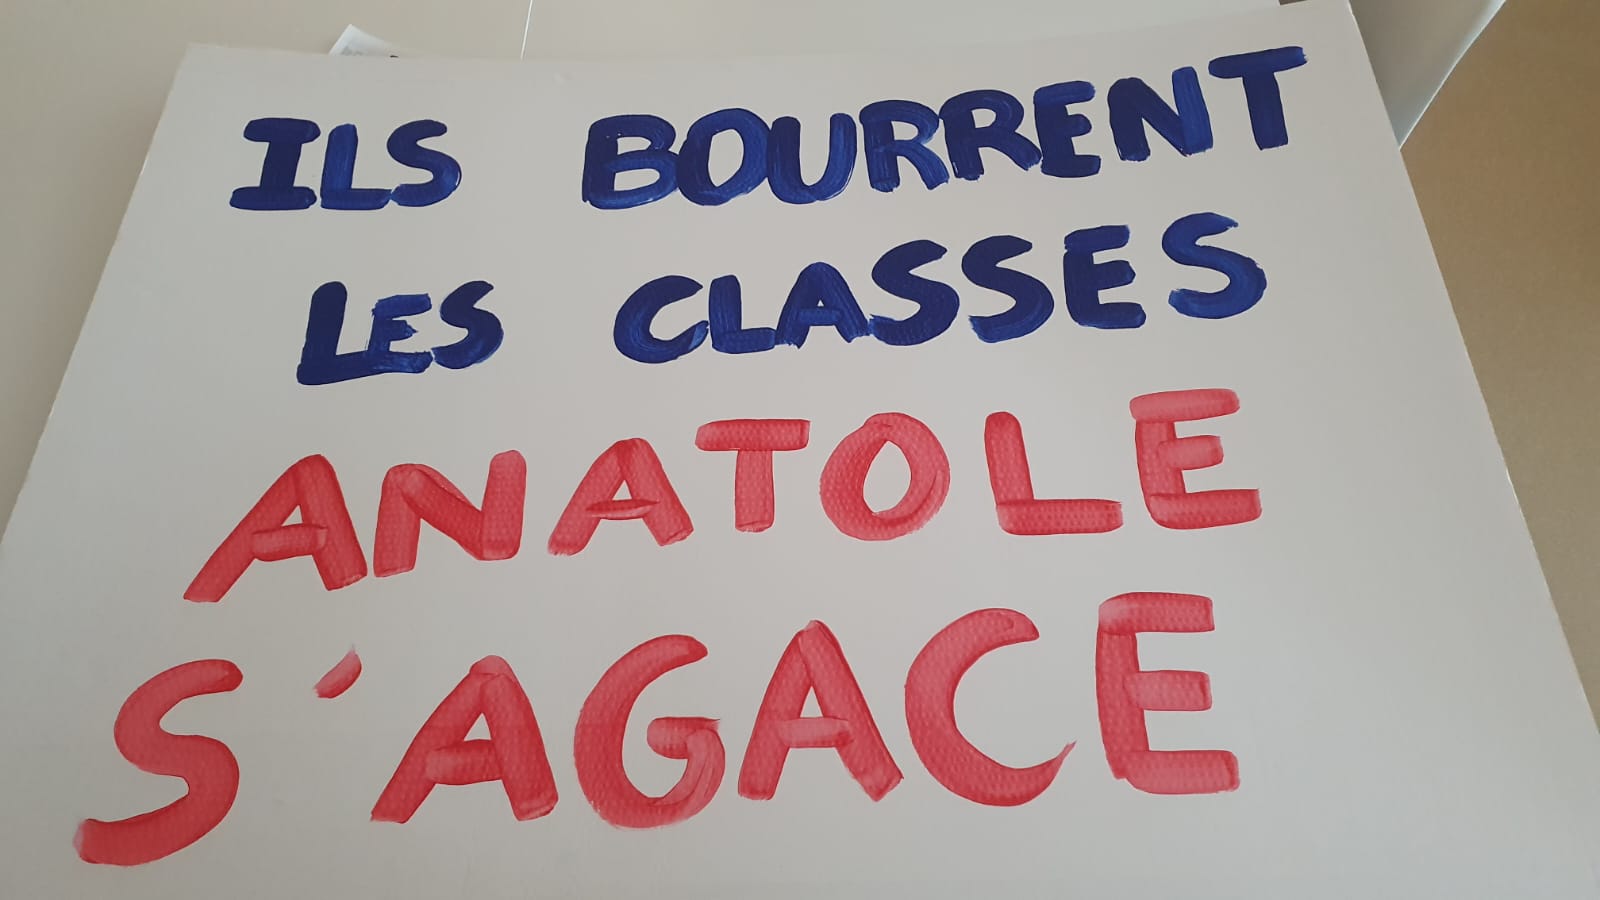 ILS BOURRENT
LES CLASSES
ANATOLE
S'AGACE